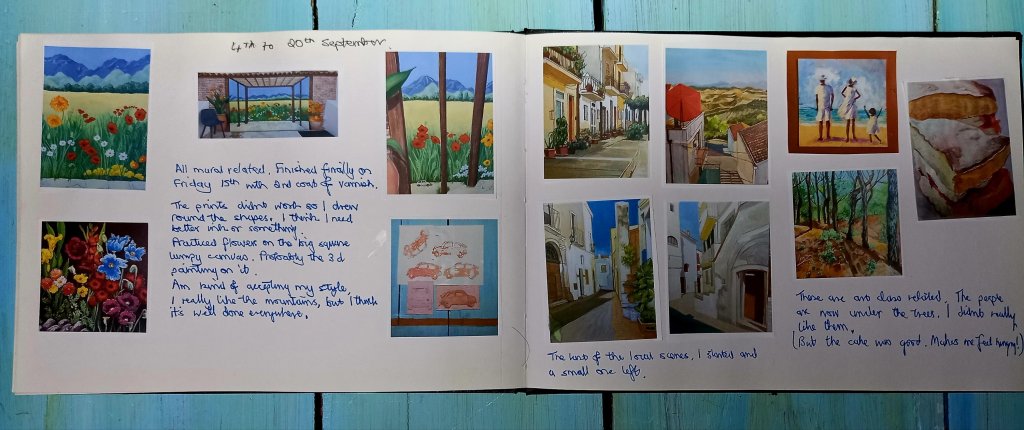 4TH to 20th September.
All mural related. Finished finally on
Friday 15th with 2nd coat of varnish.
The prints didnt work so I drew
round the shapes. I think I need
better ink or something.
Practiced flower on the big square
lumpy canvas. Probably the 3d
painting on it.
Am kind of accepting my style.
I really like the mountains, but I think
it's well done everywhere.
The last of the local scenes. I started and
a small one left.
These are art class related. The people
are now under the trees. I didnt really
like them.
(But the cake was good. Makes me feel hungry!)